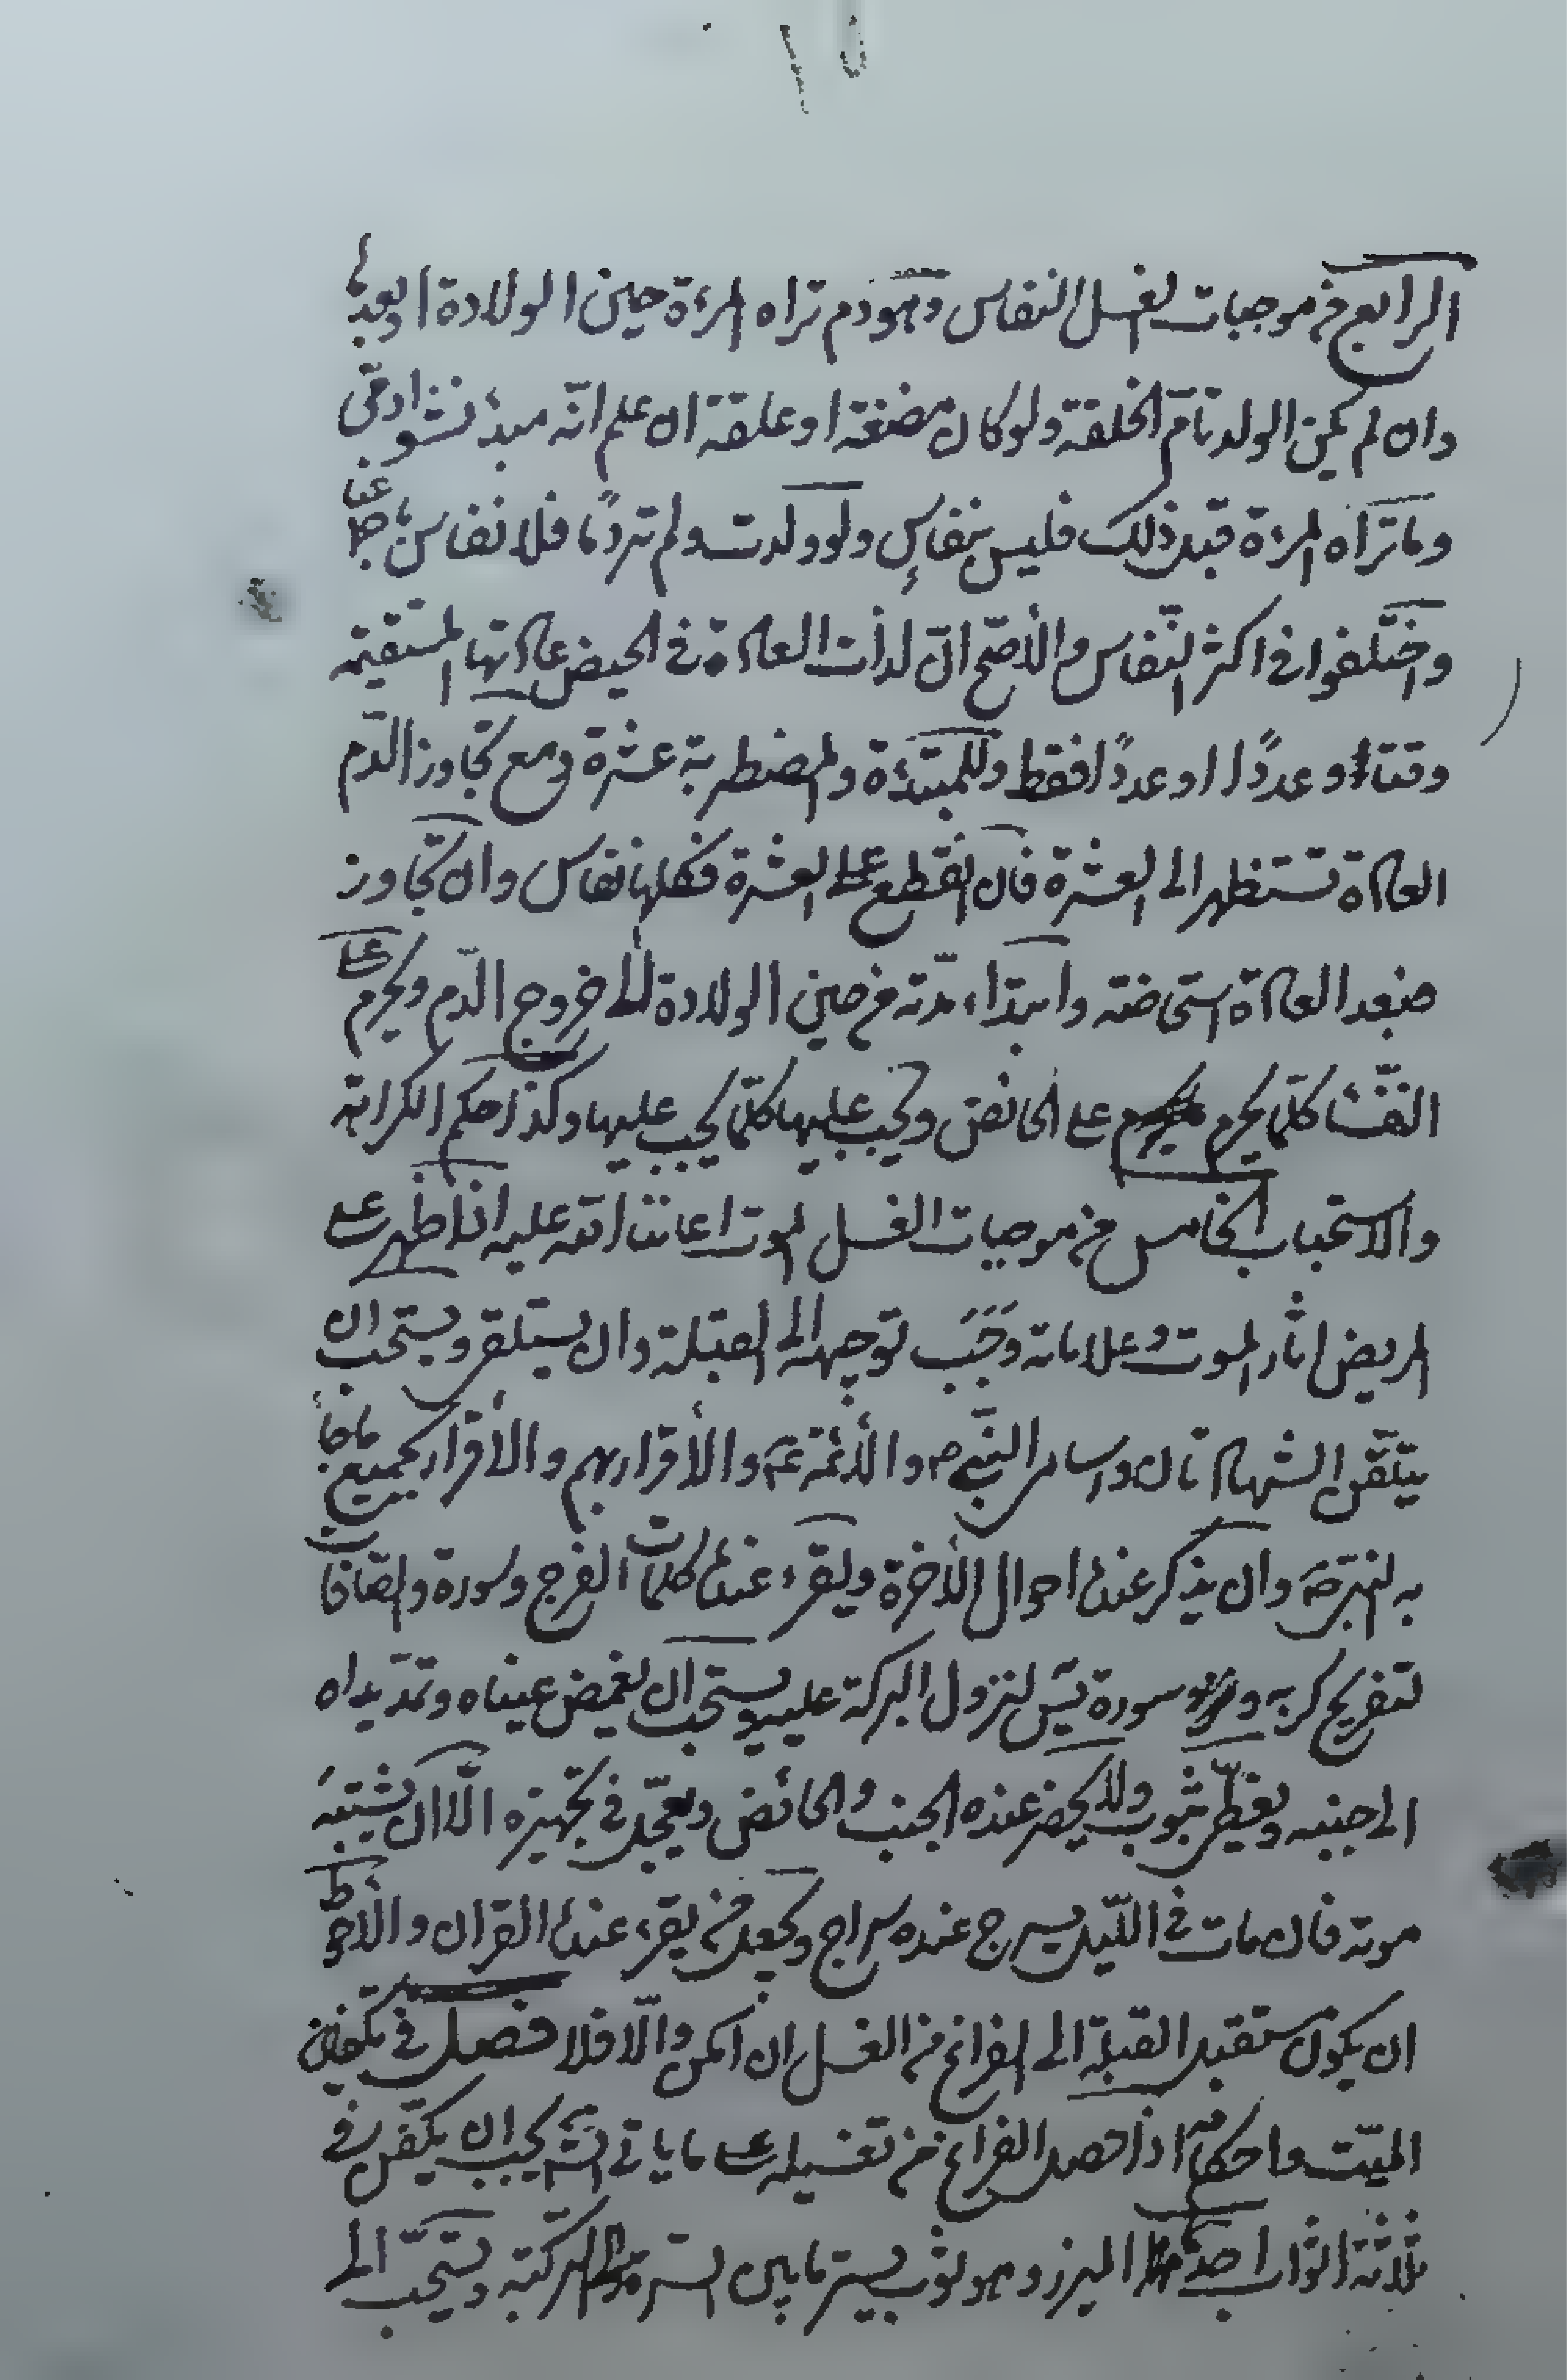 الرابع من موجبات الغسل النفاس وهو دم تراه المرءة حين الولادة او بعدها
وان لم يكن الولد تام الخلقة ولو كان مضغة او علقة ان علم انّه مبدء نشو ادمى
وما تراه المرءة قبل ذلك فليس بنفاسٍ ولو ولدت ولم تر دمًا فلا نفاس
واختلفوا فى اكثر النّفاس والأصّح انّ لذات العادة فى الحيض عادتها المستقيمة
وقتا وعددًا او عددًا فقط وللمبتدءة والمضطربة عشرة ومع تجاوز الدّم
العادة تستظهر الى العشرة فان انقطع على العشرة فكلها نفاس وان تجاوز
فبعد العادة استحاضة وابتداء مدّته من حين الولادة الى خروج الدّم ويحرم على
النفّسا كلّما يحرم على الحائض ويجب عليها كلّما يجب عليها وكذا حكم الكراهة
والاستحباب الخامس من موجبات الغسل الموت اعاننا الله عليه اذا ظهر على
المريض اثار الموت وعلاماته وَجَبَ توجهه الى القبلة وان يستلقى ويستحب ان
يتلقّن الشهادتان واسامى النّبى ص والأئمّة ع والأقرار بهم والأقرار بجميع ماجأ
به النبى ص وان يذكر عنده احوال الأخرة ويقرء عنده كلمات الفرج وسورة والصافات
لتفريج كربه وسورة يسّ لنزول البركة عليه ويستحب ان يغمض عيناه وتمدّ يداه
الى جنبيه ويغطّى بثوب ولا يحضر عنده الجنب والحائض ويعجّل فى تجهيزه الّا ان يشتبه
موته فان مات فى اللّيل يسرج عنده سراج ويجعل من يقرء عنده القران والأحوط
ان يكون مستقبل القبلة الى الفراغ من الغسل ان امكن والّا فلا فصل فى تكفين
الميّت واحكامه اذا حصل الفراغ من تغسيله على ما ياتى يجب ان يكفّن فى
ثلاثة اثواب احدها الميزر وهو ثوب يستر ما بين السّرة الى الركبة ويستحّب الى